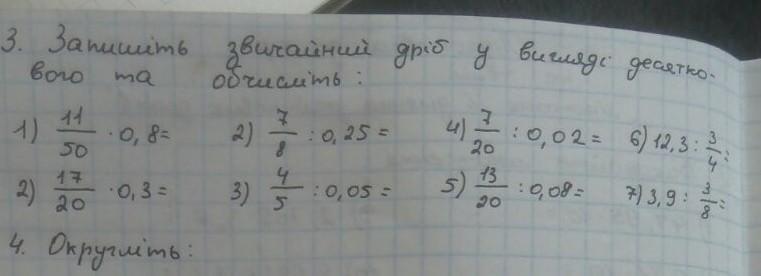 3. Запишіть звичайний дріб у вигляді десятко-
вого та обчисліть:
1) 11/50 · 0,8= 2) 7/8 : 0,25 = 4) 7/20 : 0,02 = 6) 12,3 : 3/4 =
2) 17/20 · 0,3 = 3) 4/5 : 0,05 = 5) 13/20 : 0,08 = 7) 3,9 : 3/8 =
4. Округліть: